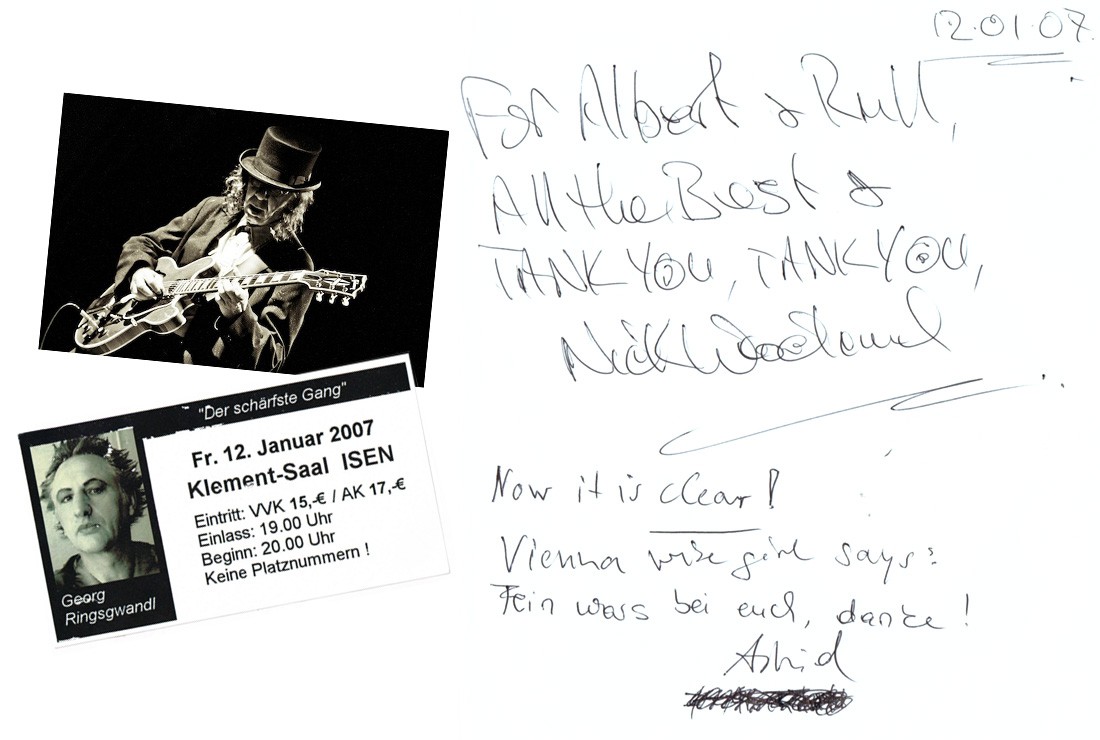 "Der schärfste Gang"
Fr. 12. Januar 2007
Klement-Saal ISEN
Eintritt: VVK 15,-€ / AK 17,-€
Einlass: 19.00 Uhr
Beginn: 20.00 Uhr
Keine Platznummern !
Georg
Ringsgwandl
12.01.07.
For Albert &
All the Best &
TANK YOU, TANK YOU,
Nick Woodland
Now it is clear!
Vienna wise girl says:
Fein wars bei euch, danke!
Astrid